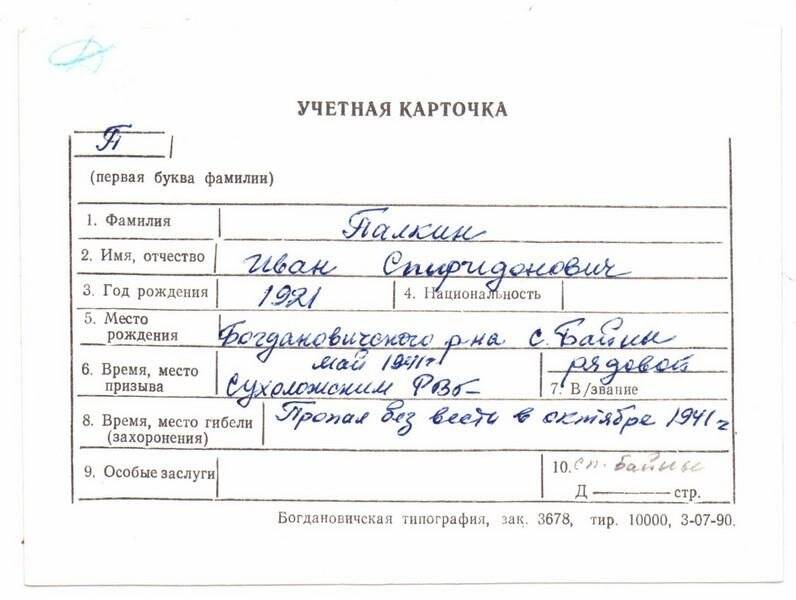 УЧЕТНАЯ КАРТОЧКА
П
(первая буква фамилии)
1. Фамилия Палкин
2. Имя, отчество Иван Спиридонович
3. Год рождения 1921 4. Национальность
5. Место рождения Богдановичского р-на с. Байны
6. Время, место призыва май 1941 г Сухоложским РВб
рядовой
7. В/звание
8. Время, место гибели (захоронения) Пропал без вести в октябре 1941 г
9. Особые заслуги
10. сп. Байны
Д ——— стр.
Богдановичская типография, зак. 3678, тир. 10000, 3-07-90.